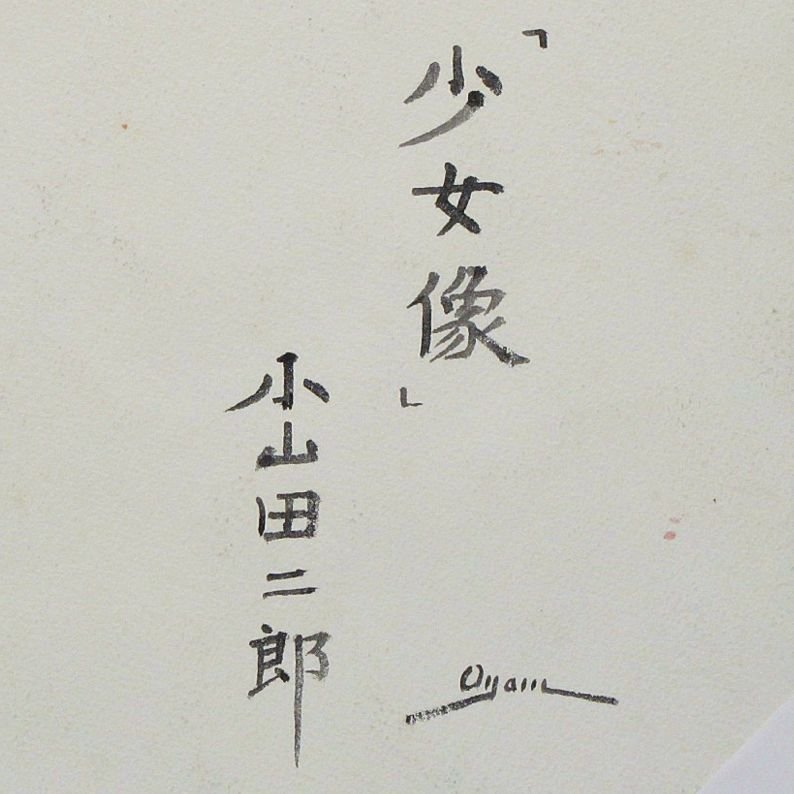 「少女像」
小山田二郎
Oyam